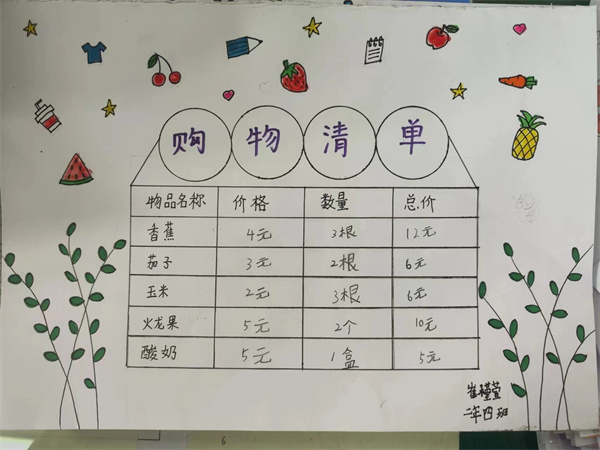 购物清单
物品名称 价格 数量 总价
香蕉 4元 3根 12元
茄子 3元 2根 6元
玉米 2元 3根 6元
火龙果 5元 2个 10元
酸奶 5元 1盒 5元
崔瑾萱
二年四班
6